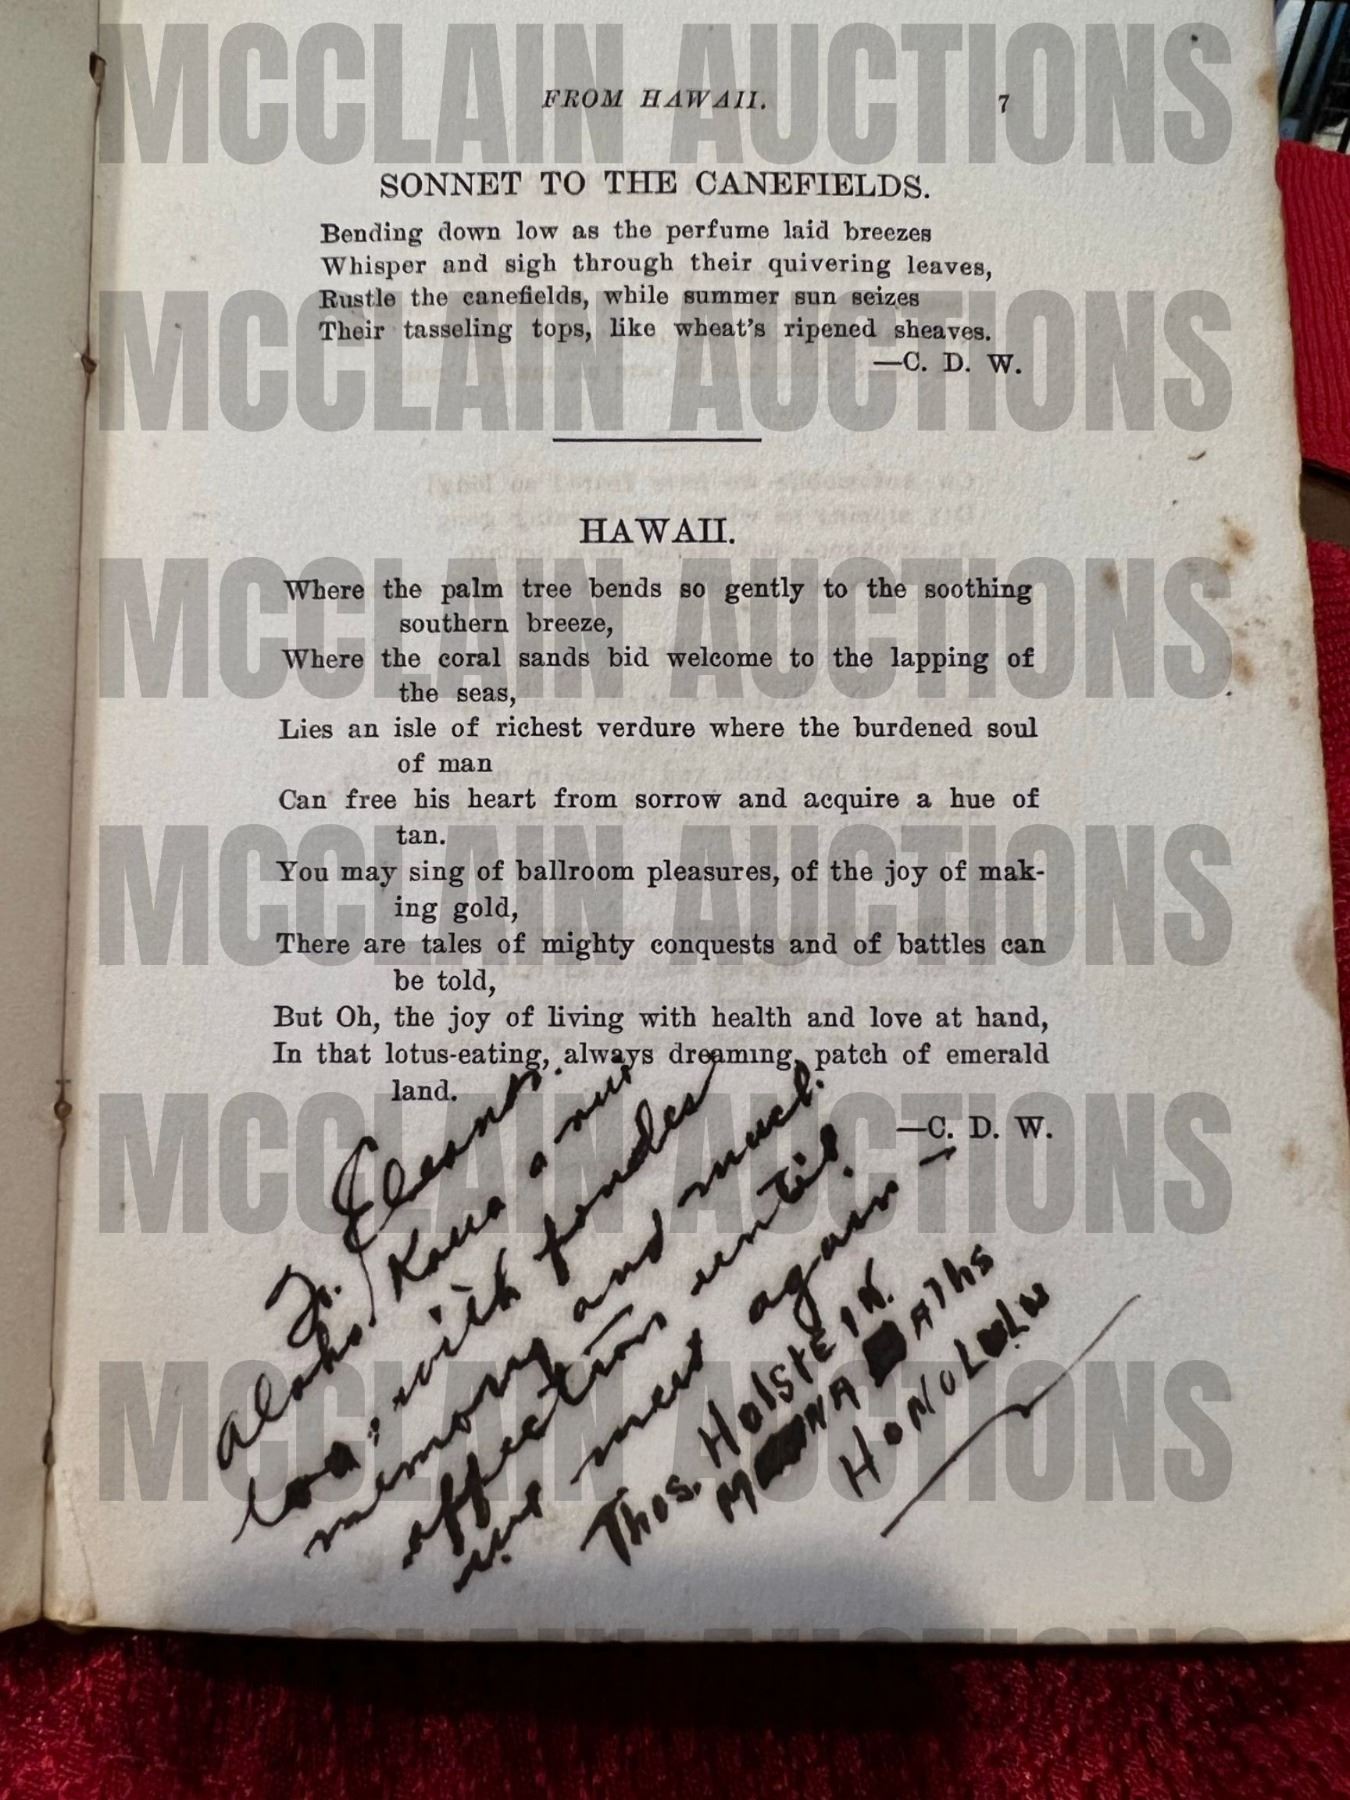 FROM HAWAII. 7
SONNET TO THE CANEFIELDS.
Bending down low as the perfume laid breezes
Whisper and sigh through their quivering leaves,
Rustle the canefields, while summer sun seizes
Their tasseling tops, like wheat's ripened sheaves.
—C. D. W.
HAWAII.
Where the palm tree bends so gently to the soothing
southern breeze,
Where the coral sands bid welcome to the lapping of
the seas,
Lies an isle of richest verdure where the burdened soul
of man
Can free his heart from sorrow and acquire a hue of
tan.
You may sing of ballroom pleasures, of the joy of mak-
ing gold,
There are tales of mighty conquests and of battles can
be told,
But Oh, the joy of living with health and love at hand,
In that lotus-eating, always dreaming, patch of emerald
land.
—C. D. W.
To Eleanor.
Aloha Kaua a nui
loa, with fondest
memory and much
affection until
we meet again —
Thos. Holstein.
BATHS
HONOLULU
MCCLAIN AUCTIONS
MCCLAIN AUCTIONS
MCCLAIN AUCTIONS
MCCLAIN AUCTIONS
MCCLAIN AUCTIONS
MCCLAIN AUCTIONS
MCCLAIN AUCTIONS